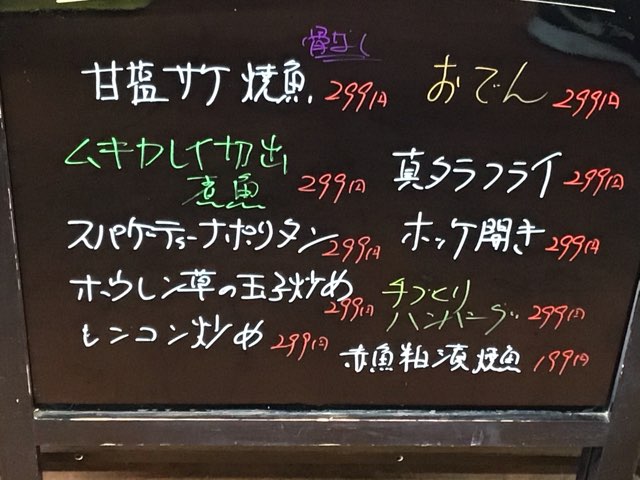 骨なし
甘塩サケ焼魚 299円
ムキカレイ切出
煮魚 299円
スパゲーティーナポリタン 299円
ホウレン草の玉子炒め 299円
レンコン炒め 299円
おでん 299円
真タラフライ 299円
ホッケ開き 299円
手づくり
ハンバーグ 299円
赤魚粕漬焼魚 199円